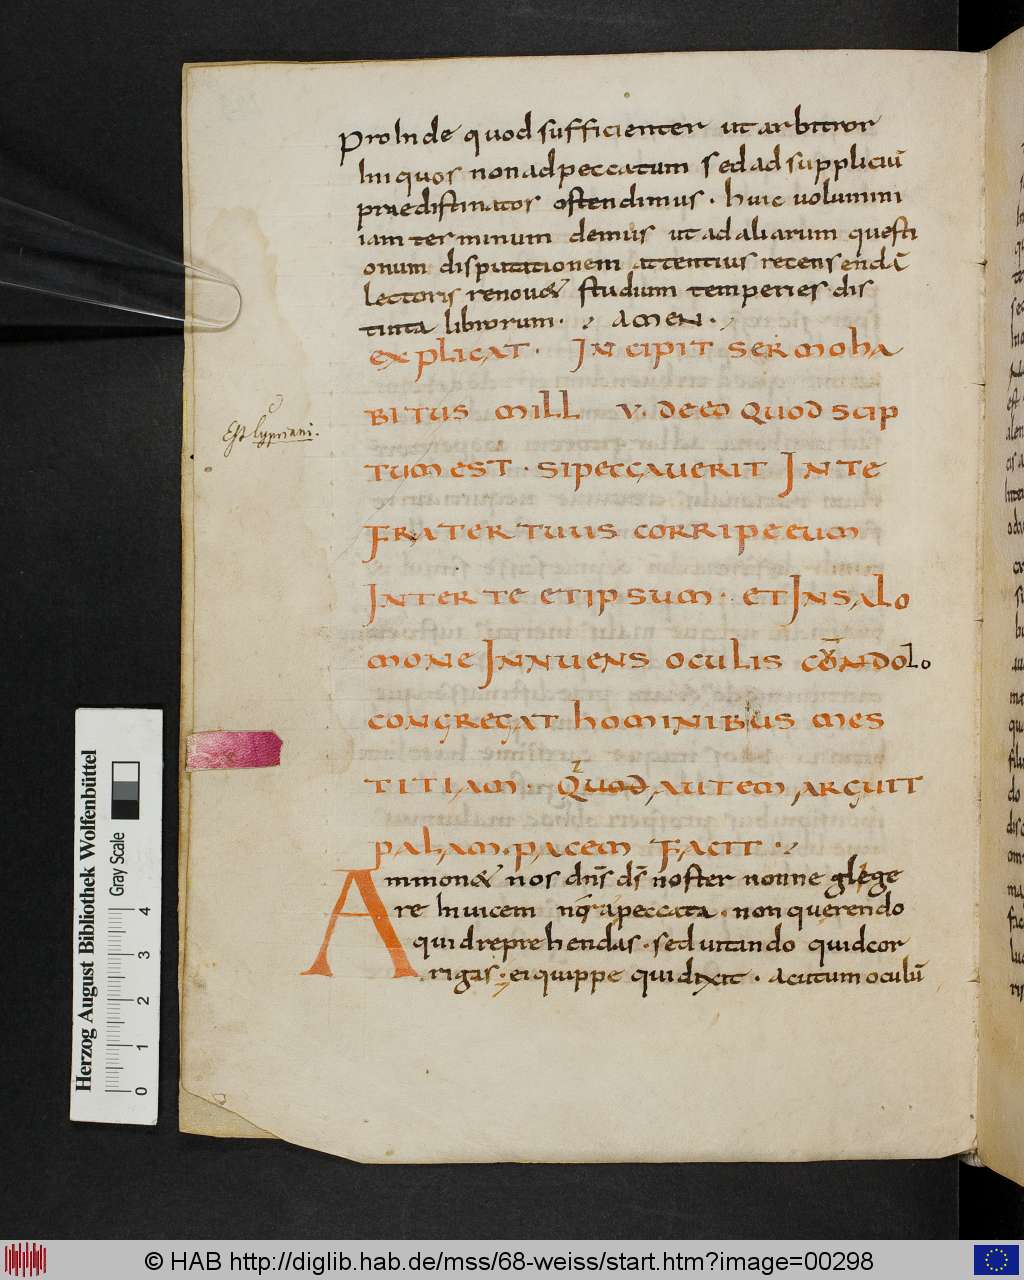 ProInde quod sufficienter ut arbitror
Iniquos non ad peccatum sed ad suppliciū
praedistinator ostendimus · huic uolumini
iam terminum demus ut ad aliarum questi
onum disputationem attentius recensendā
lectoris renou& studium temperies dis
tincta librorum · AMEN ·
explicat · INcipit sermo ha
bitus mill v · de eo quod scrip
tum est · si peccauerit IN te
frater tuus corripe eum
INter te et ipsum · et IN salo
mone INnuens oculis cum dolo
congregat hominibus mes
titiam · Quod autem arguit
palam · pacem facit ·
Est Cypriani ·
Ammon& nos dn̄s ds̄ noster nonne glege
re Inuicem nr̄a peccata · non querendo
quid reprehendas · sed uitando quid cor
rigas · ei quippe qui dixit · acutum oculū
Herzog August Bibliothek Wolfenbüttel
Gray Scale
0 1 2 3 4
© HAB http://diglib.hab.de/mss/68-weiss/start.htm?image=00298